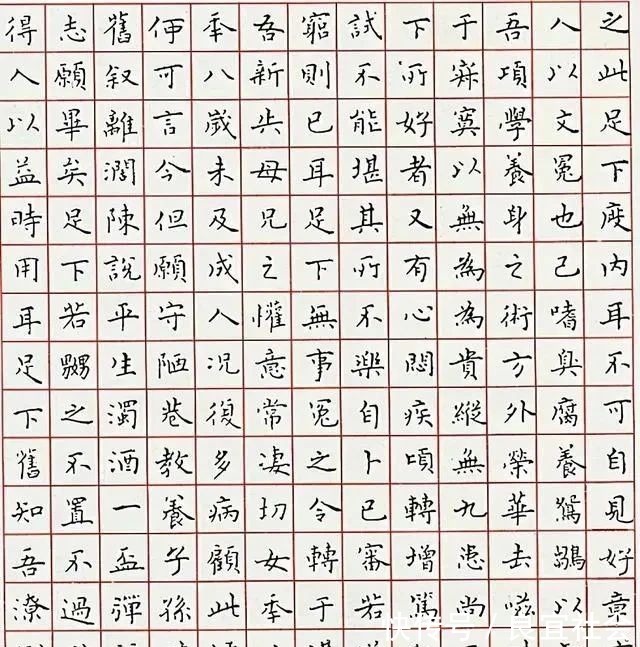 之此足下度内耳不可自見好章
人以文冕也己嗜臭腐養鴛鶵以
吾項學養身之術方外榮華去滋
于寂寞以無為為貴縱無九患尚
下所好者又有心悶疾頃轉增篤
試不能堪其所不樂自卜已審若
窮則已耳足下無事冤之令轉于
吾新失母兄之懽意常凄切女年
年八歲未及成人況復多病顧此
何可言今但願守陋巷教養子孫
舊叙離濶陳說平生濁酒一盃彈
志願畢矣足下若嬲之不置不過
得人以益時用耳足下舊知吾潦
快传号／良宜社会